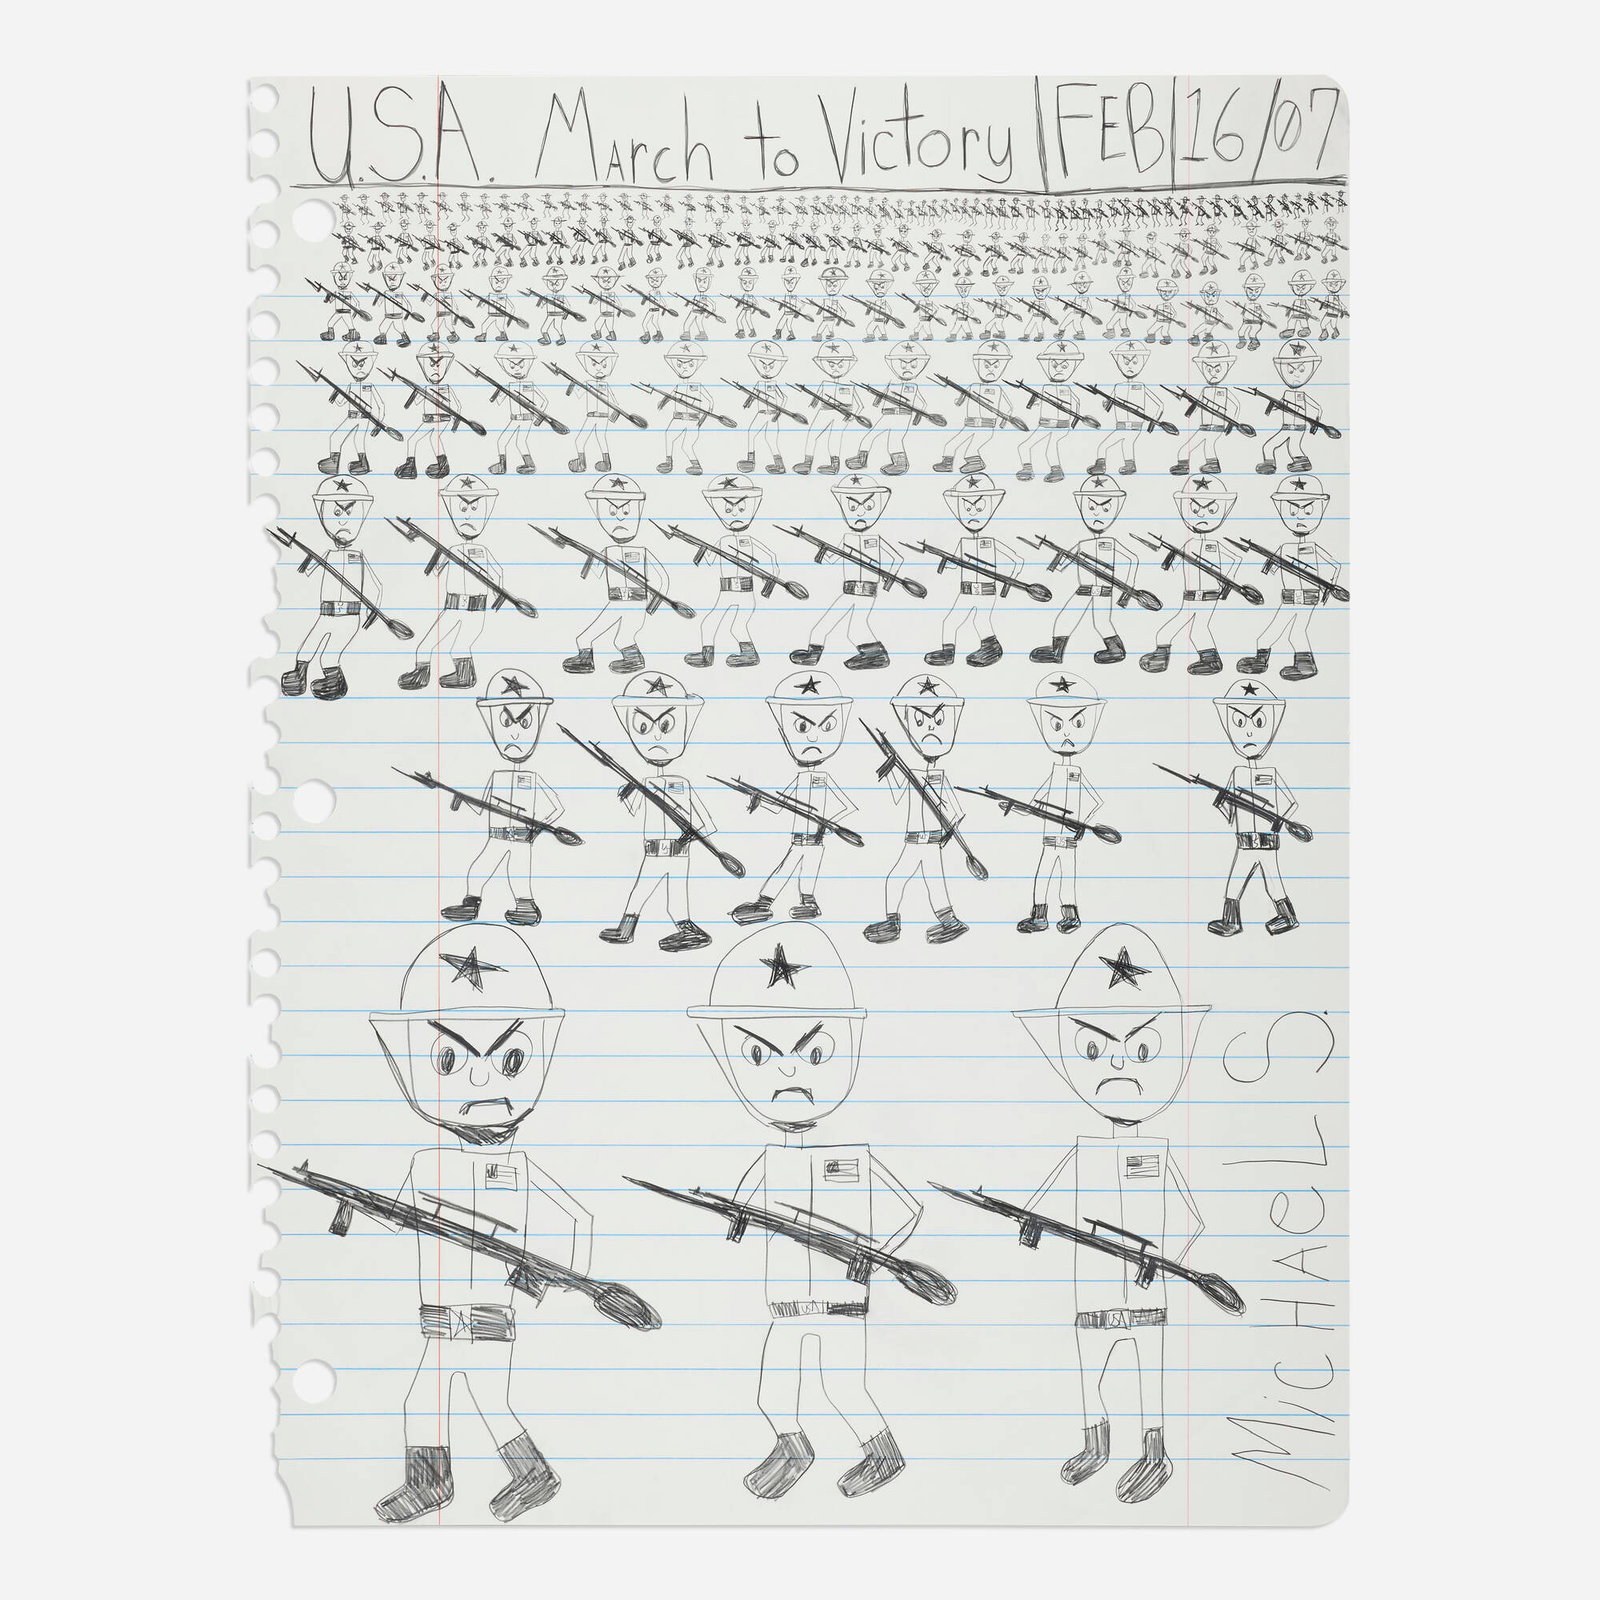 U.S.A. March to Victory | FEB | 16/07
USA
USA
MicHAeL S.